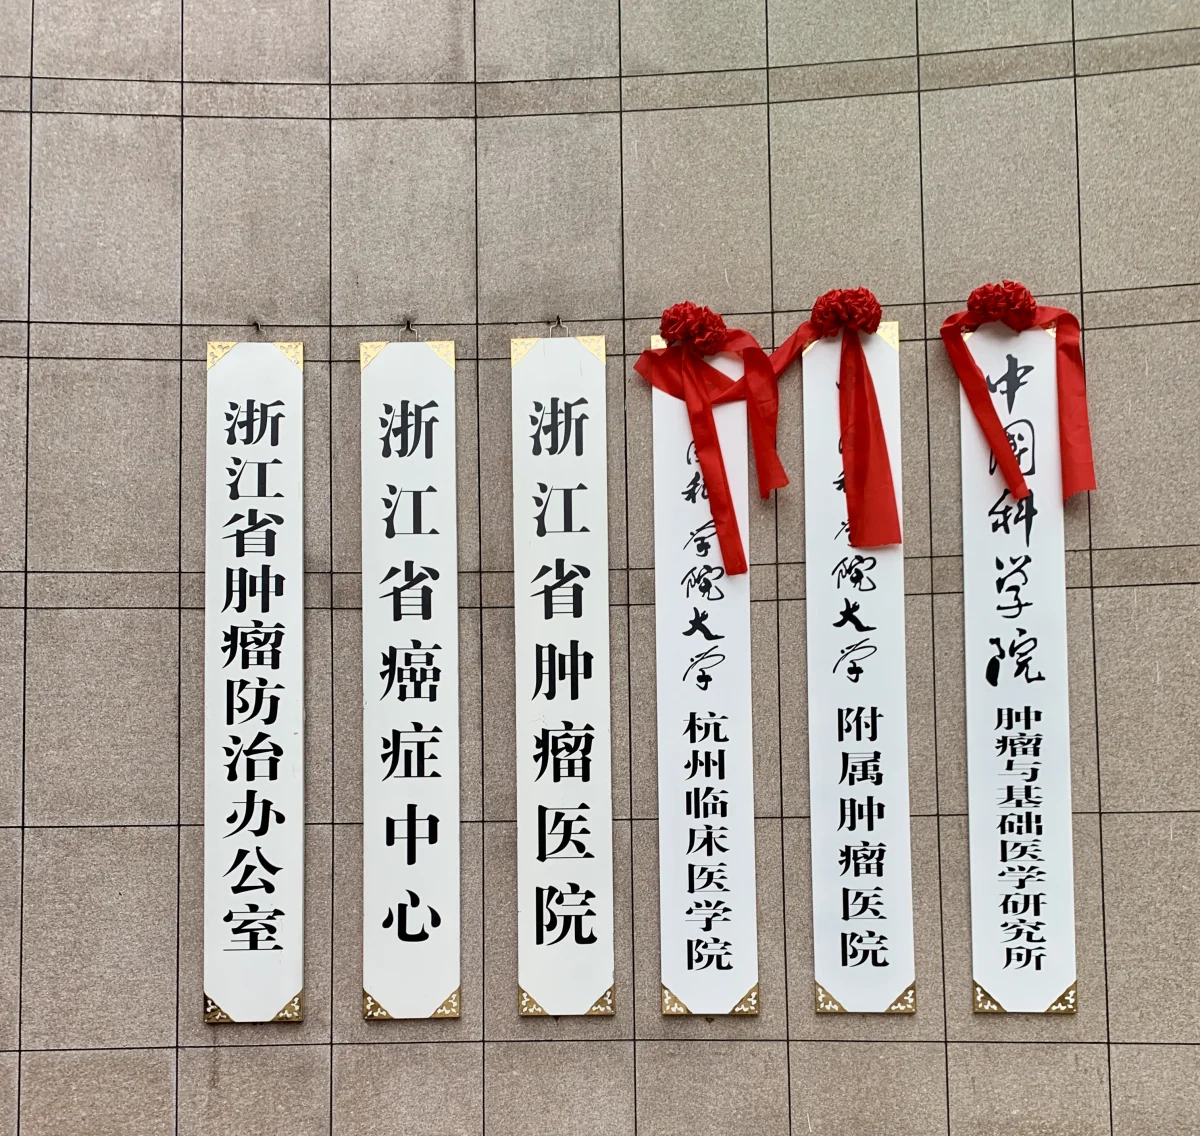 浙江省肿瘤防治办公室
浙江省癌症中心
浙江省肿瘤医院
国科学院大学 杭州临床医学院
国科学院大学 附属肿瘤医院
中国科学院 肿瘤与基础医学研究所